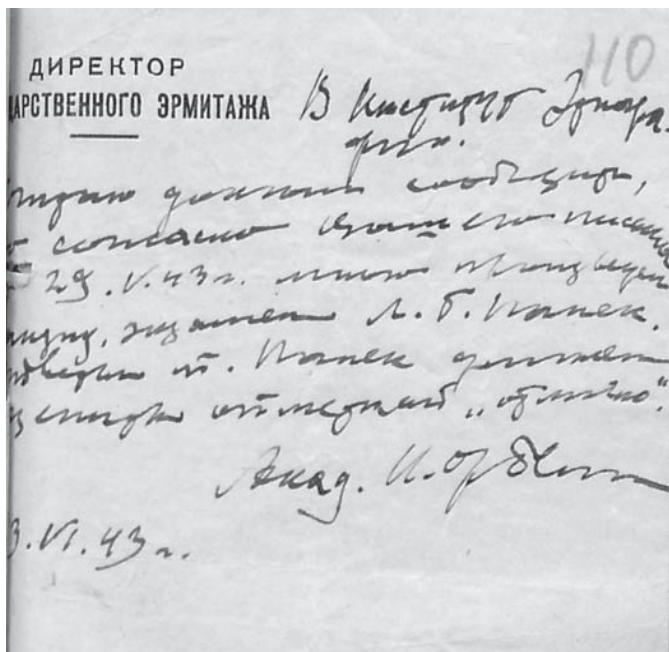 110
ДИРЕКТОР
ДАРСТВЕННОГО ЭРМИТАЖА
В Институт Этногра-
фии.
сообщить,
согласно Вашего письма
29.V.43 г. мною произведен
экзамен Л. Б. Панек.
т. Панек должен
отметкой „отлично".
Акад. И. Орбели
3.VI.43 г.